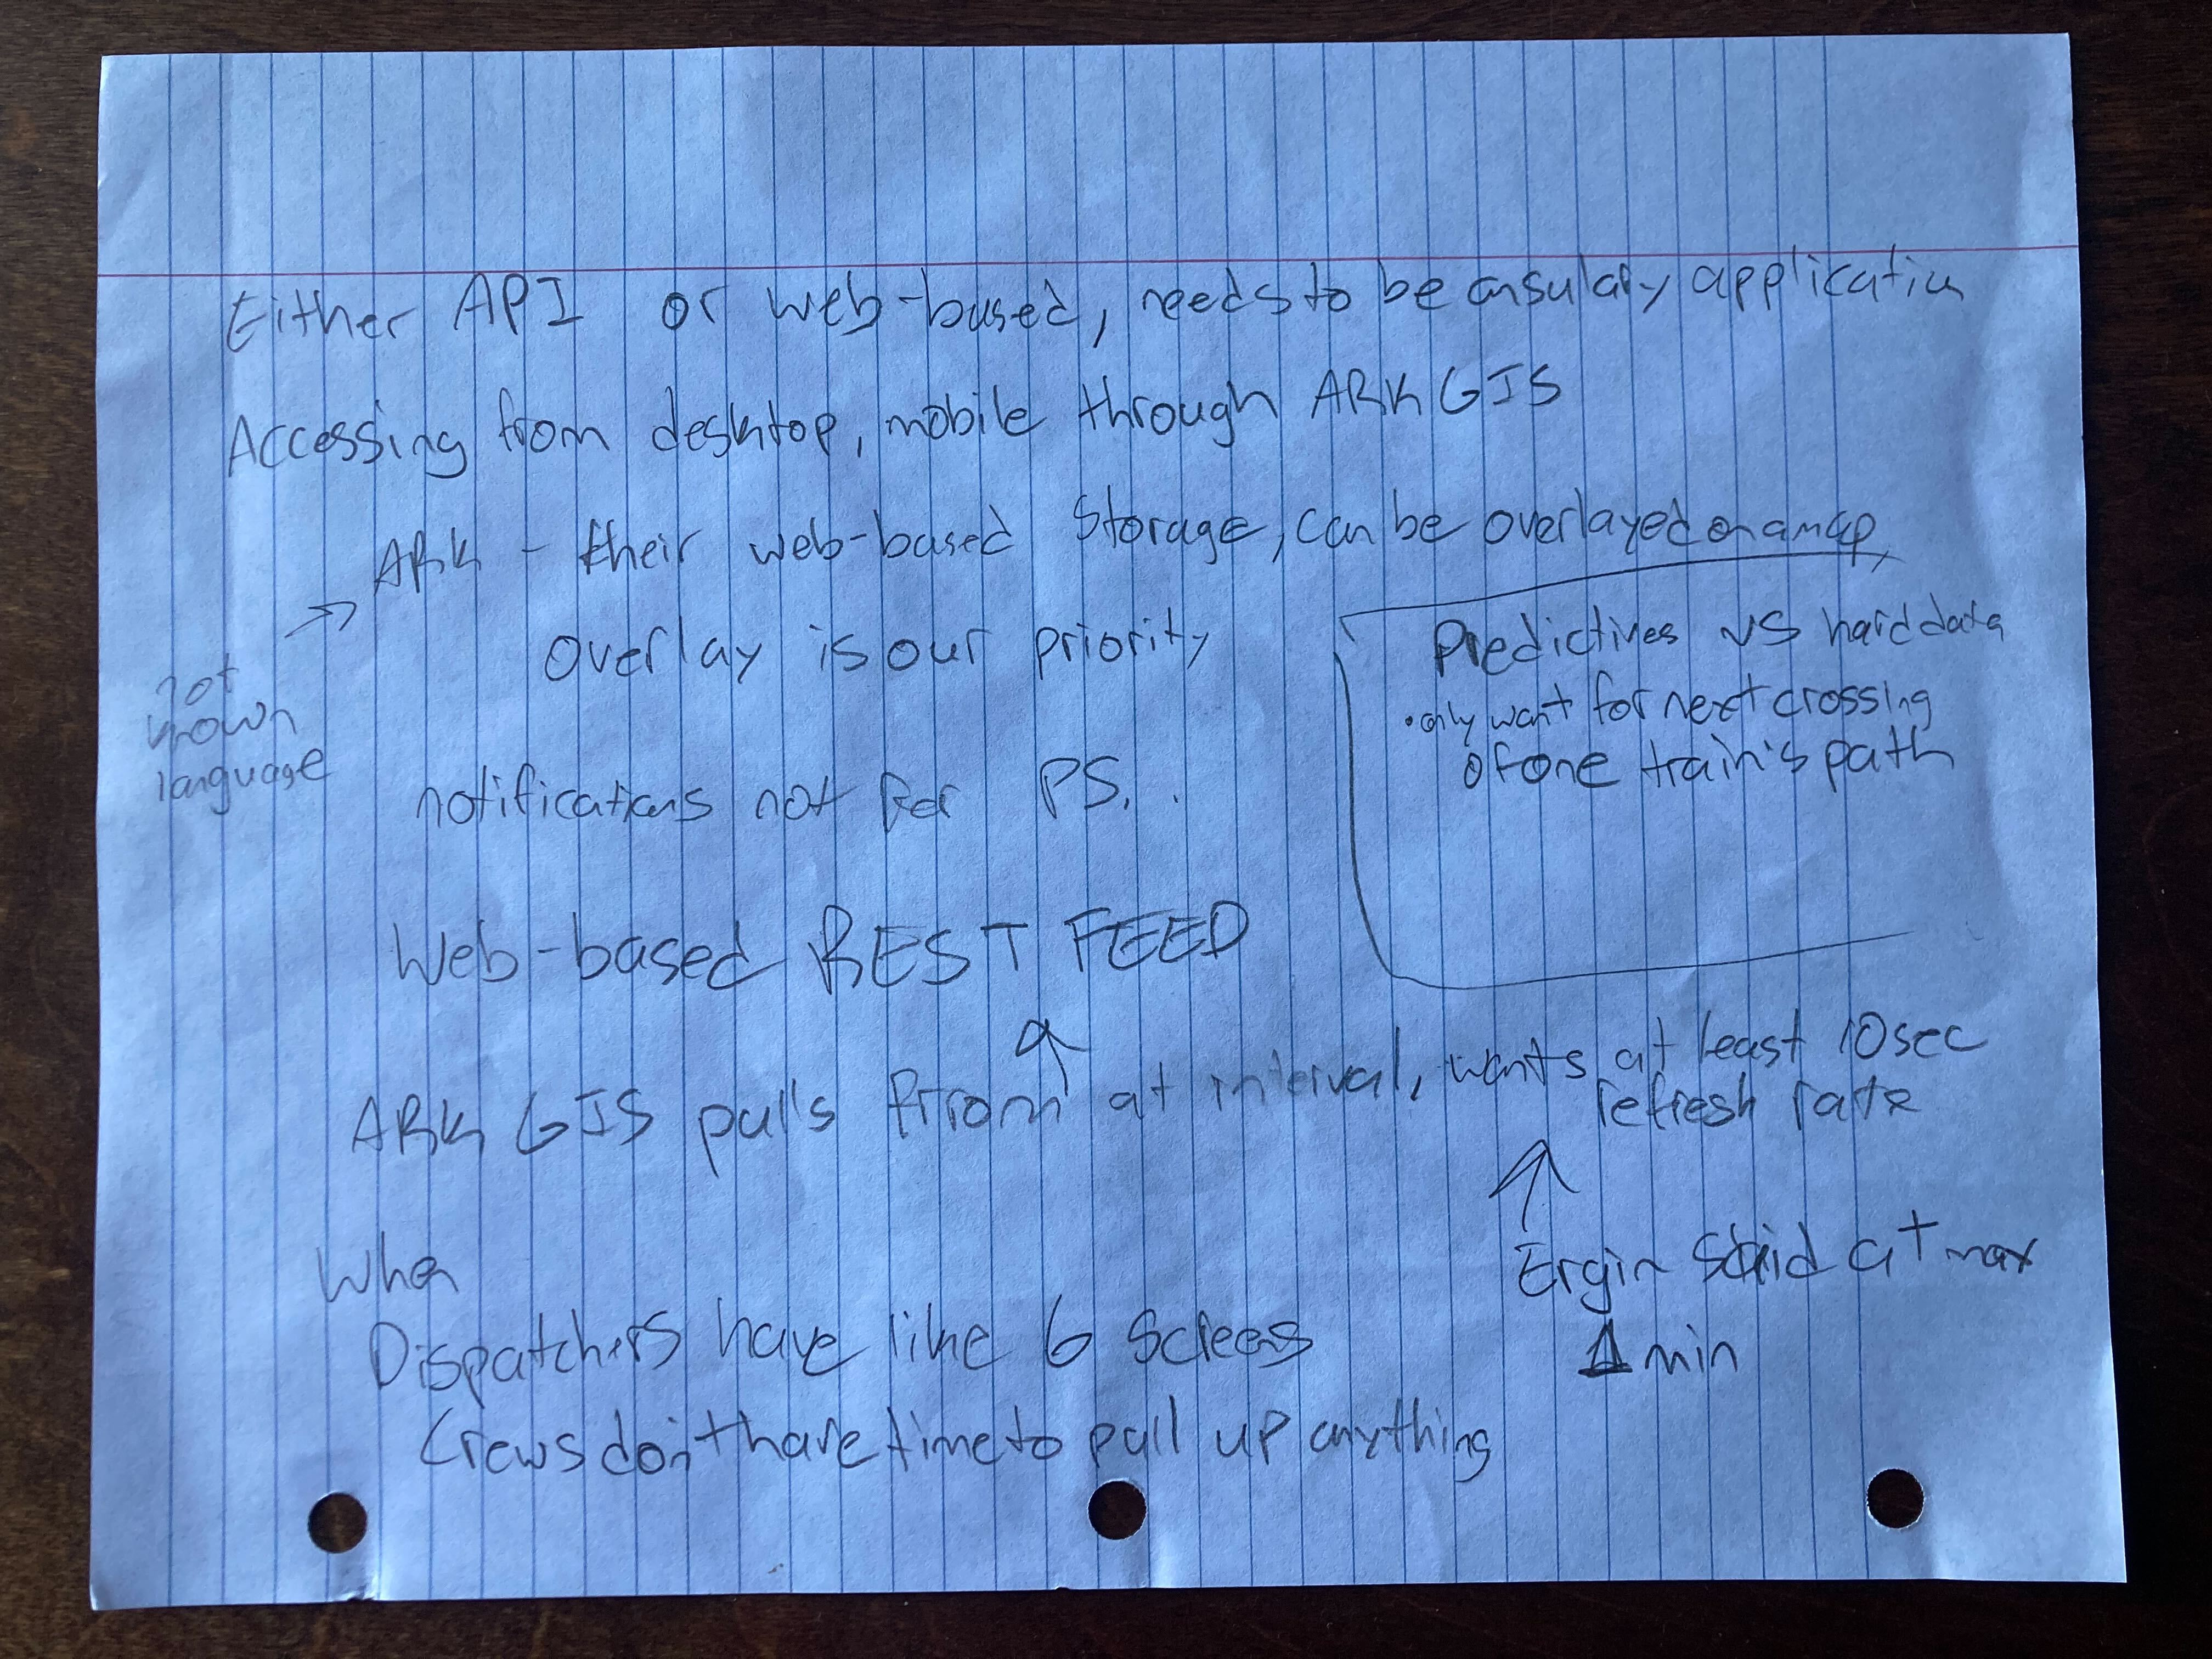 Either API or web-based, needs to be ansulary application
Accessing from desktop, mobile through ARK GIS
ARK - their web-based storage, can be overlayed on a map
→
overlay is our priority
not
known
language
Predictives vs hard data
• only want for next crossing
of one train's path
notifications not for PS.
Web-based REST FEED
ARK GIS pulls from at interval, wants at least 10 sec
refresh rate
Ergin said at max
1 min
When
Dispatchers have like 6 screens
Crews don't have time to pull up anything